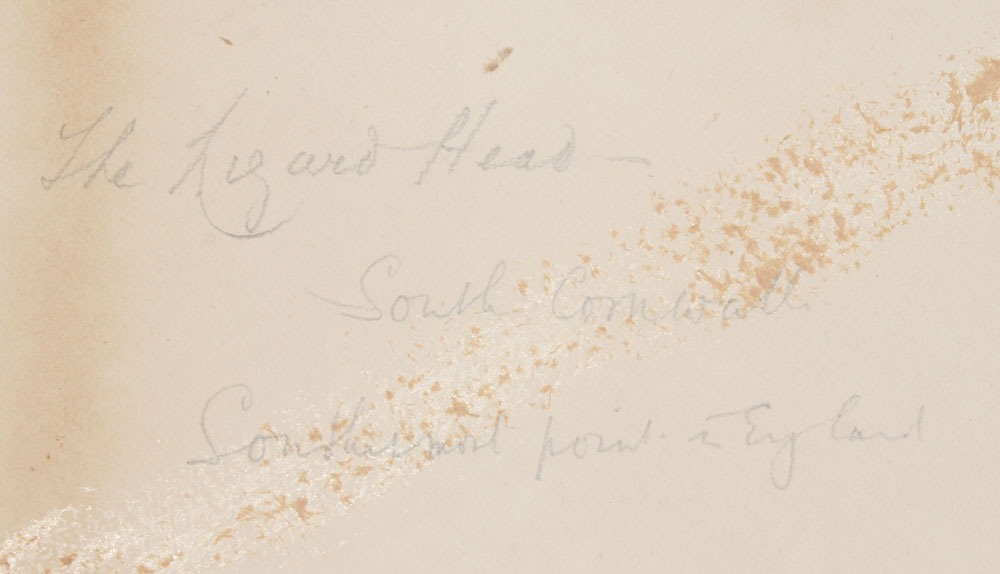 The Lizard Head —
South Cornwall.
Southermost point in England